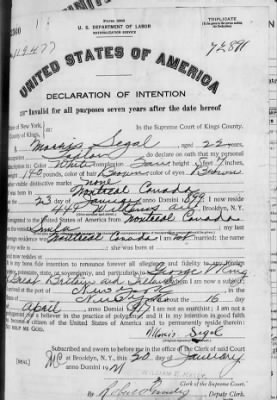 Form 2203
TRIPLICATE
U. S. DEPARTMENT OF LABOR
NATURALIZATION SERVICE
UNITED STATES OF AMERICA
DECLARATION OF INTENTION
Invalid for all purposes seven years after the date hereof
State of New York,
County of Kings,
In the Supreme Court of Kings County.
Morris Segal, aged 22 years,
occupation do declare on oath that my personal
description is: Color White, complexion Fair, height 5 feet 7 inches,
weight 140 pounds, color of hair Brown, color of eyes Brown
other visible distinctive marks none
I was born in Montreal Canada
on the 23 day of January, anno Domini 1899; I now reside
at Ave, Brooklyn, N.Y.
I emigrated to the United States of America from Montreal Canada
on the vessel; my last
foreign residence was Montreal Canada; I am not married; the name
of my wife is; she was born at
and now resides at
It is my bona fide intention to renounce forever all allegiance and fidelity to any foreign
prince, potentate, state, or sovereignty, and particularly to George V King
Great Britain and Ireland, of whom I am now a subject;
I arrived at the port of New York, in the
State of New York, on or about the 16 day
of April, anno Domini; I am not an anarchist; I am not a
polygamist nor a believer in the practice of polygamy; and it is my intention in good faith
to become a citizen of the United States of America and to permanently reside therein:
SO HELP ME GOD.
Morris Segal
Subscribed and sworn to before me in the office of the Clerk of said Court
at Brooklyn, N.Y., this 20 day of January
anno Domini 1921
WILLIAM E. KELLY
Clerk of the Supreme Court.
By
Deputy Clerk.